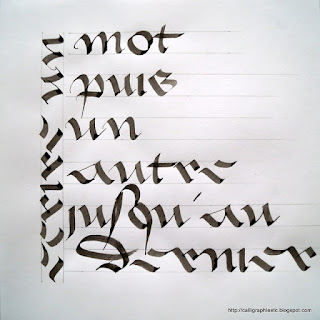 mot
puis
un
autre
jusqu'au
dernier
http://calligraphieetc.blogspot.com